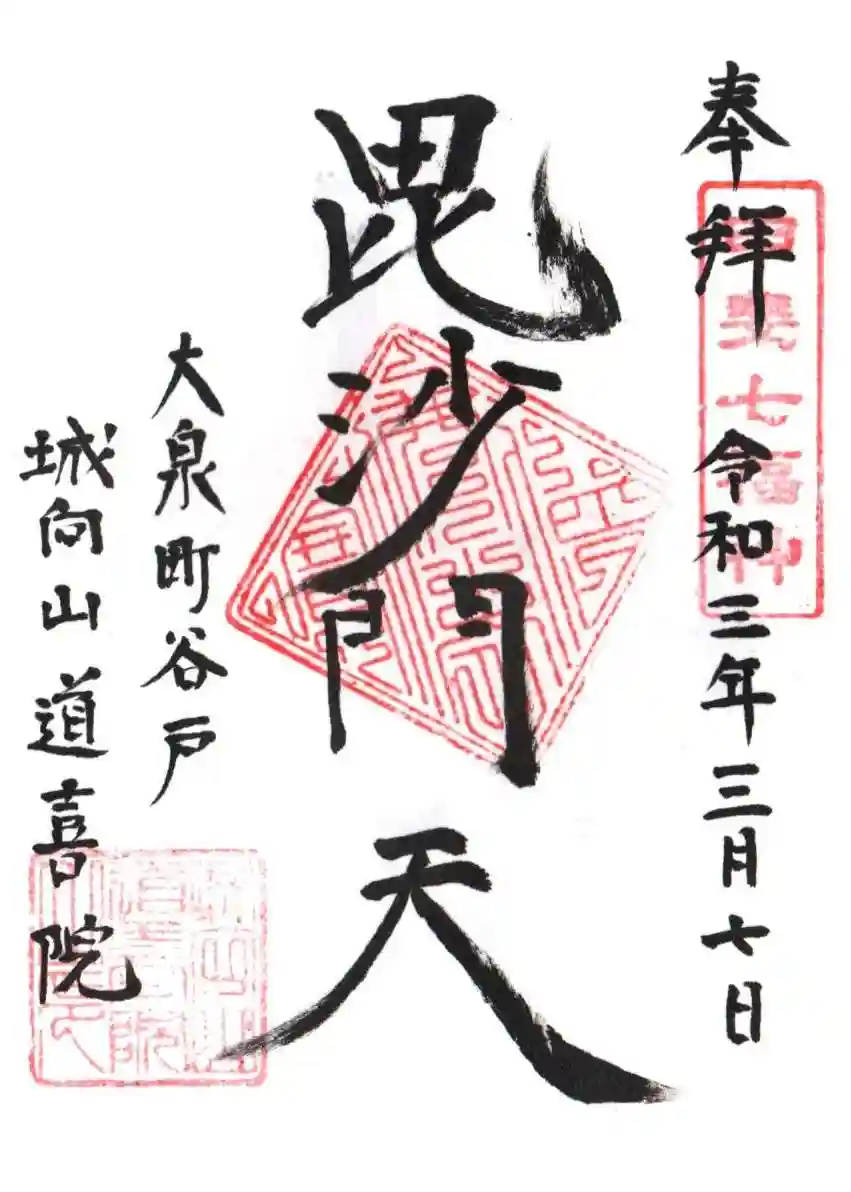 奉拝
令和三年三月七日
毘沙門天
大泉町谷戸
城向山道喜院